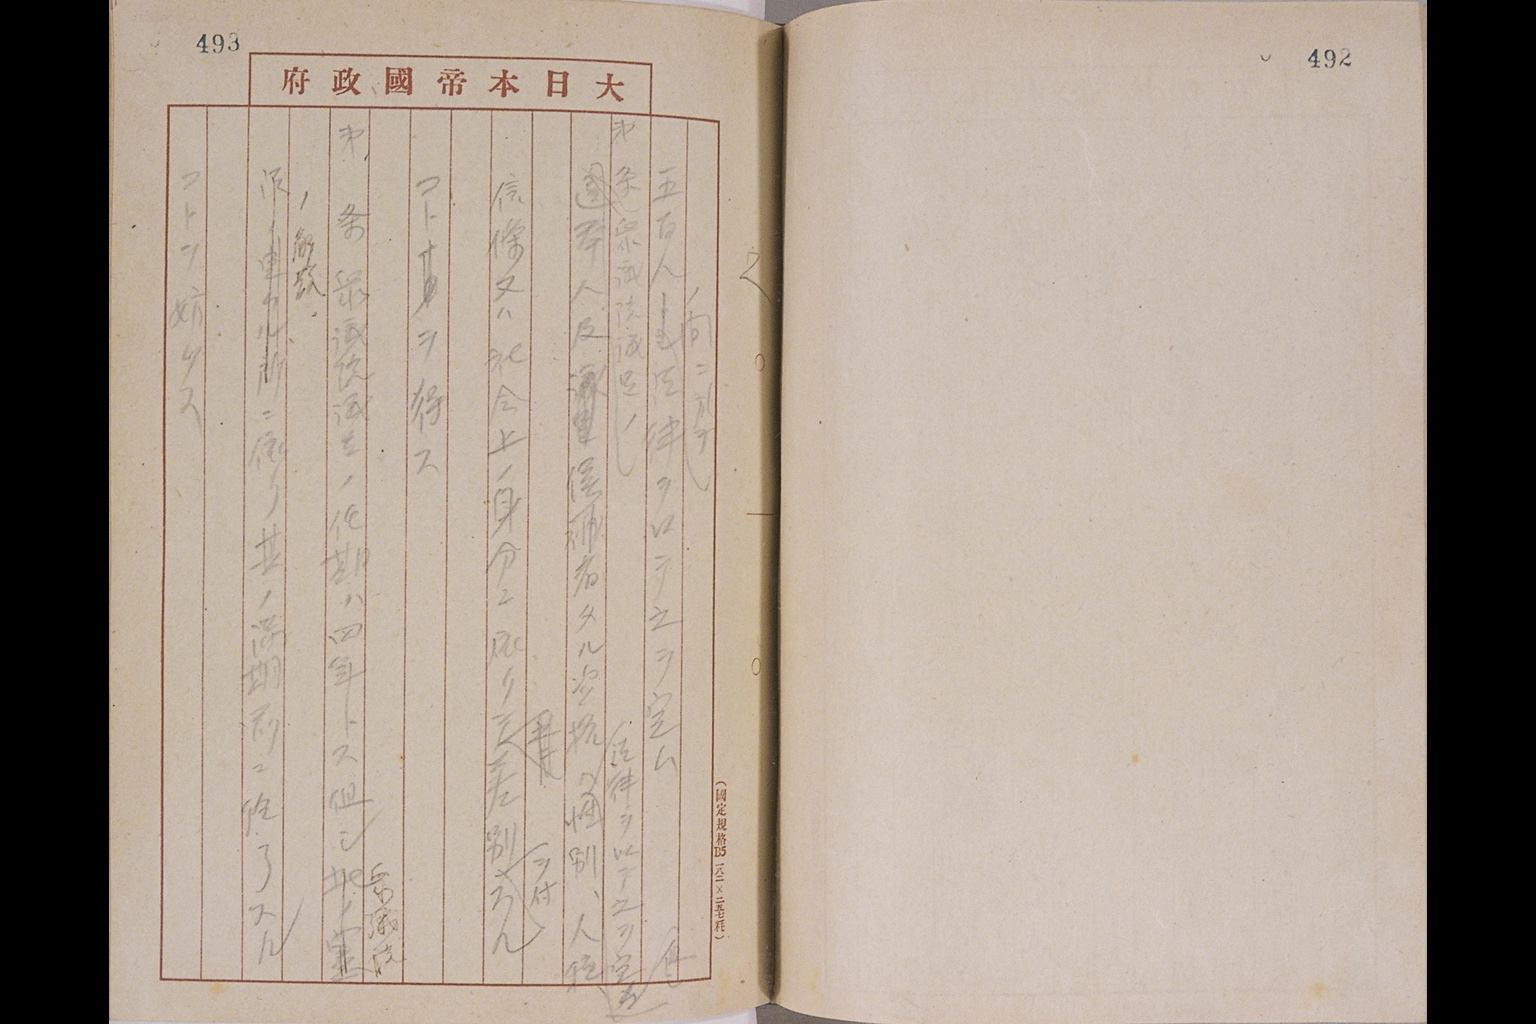 492
493
大日本帝國政府
五百人
法律ヲ以テ之ヲ定ム
第 条 衆議院議員ノ
法律ヲ以テ之ヲ定ム
選挙人及 候補者タル資格ハ性別、人種
信條又ハ社会上ノ身分ニ依リ 差別
ヲ付
コト ヲ得ス
第 条 衆議院議員ノ任期ハ四年トス但シ此ノ憲
衆議院
ノ解散
法ノ 所ニ依リ其ノ満期前ニ終了スル
コトヲ妨ケス
(國定規格B5 一八二×二五七粍)